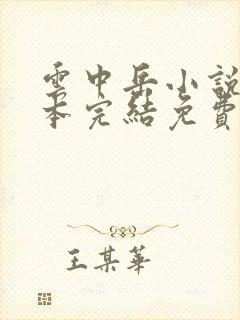 雲中岳小說
本完結免費
王某華